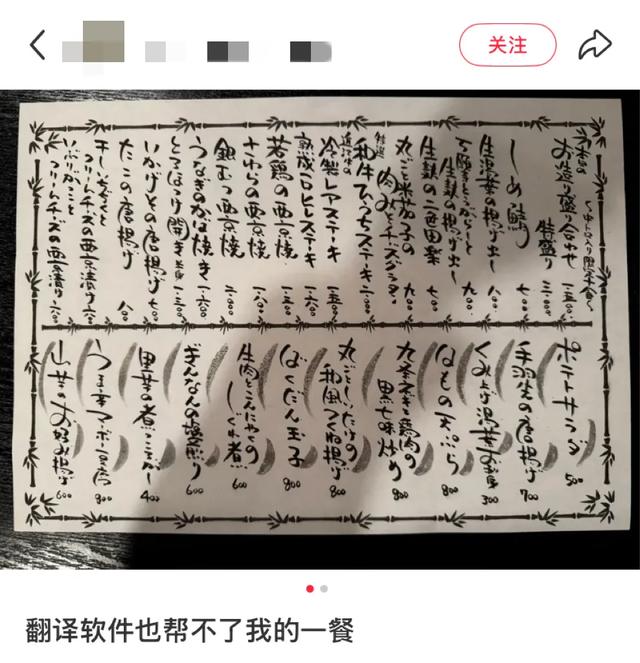 关注
本日の
お造り盛り合わせ 一五〇〇
特盛り
しめ鯖 七〇〇
生湯葉の揚げ出し 八〇〇
万願寺とうがらしと
生麩の揚げ出し 九〇〇
生麩の二色田楽 七〇〇
丸ごと米茄子の
肉みそチーズグラタン 九〇〇
特選
和牛ひうちステーキ
冷製レアステーキ 一五〇〇
熟成ロヒレステーキ 一六〇〇
若鶏の西京焼 一三〇〇
さわらの西京焼
銀むつ西京焼
うなぎのかば焼き 一六〇〇
とろほっけ開き
いかげその唐揚げ 七〇〇
たこの唐揚げ 八〇〇
クリームチーズの西京漬け 六〇〇
いぶりがっこと
クリームチーズの西京漬り 六〇〇
ポテトサラダ 500
手羽先の唐揚げ 700
くみ上げ湯葉
はもの天ぷら 800
九条ネギと鶏肉の
黒七味炒め 800
丸ごとしいたけの
和風つくね揚げ 800
ばくだん玉子 800
牛肉とこんにゃくの
しぐれ煮 600
ぎんなんの塩煎り 600
里芋の煮っころがし 400
山芋のお好み揚げ 600
翻译软件也帮不了我的一餐